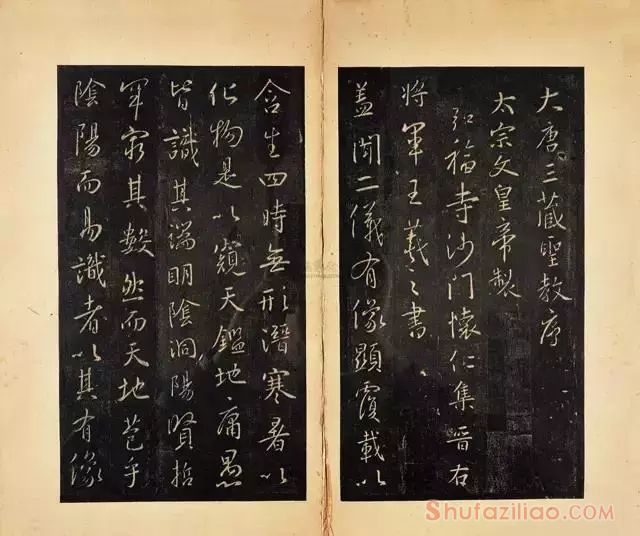 大唐三藏聖教序
太宗文皇帝製
弘福寺沙門懷仁集晉右
將軍王羲之書
蓋聞二儀有像顯覆載以
含生四時無形潛寒暑以
化物是以窺天鑑地庸愚
皆識其端明陰洞陽賢哲
罕窮其數然而天地苞乎
陰陽而易識者以其有像
Shufaziliao.COM